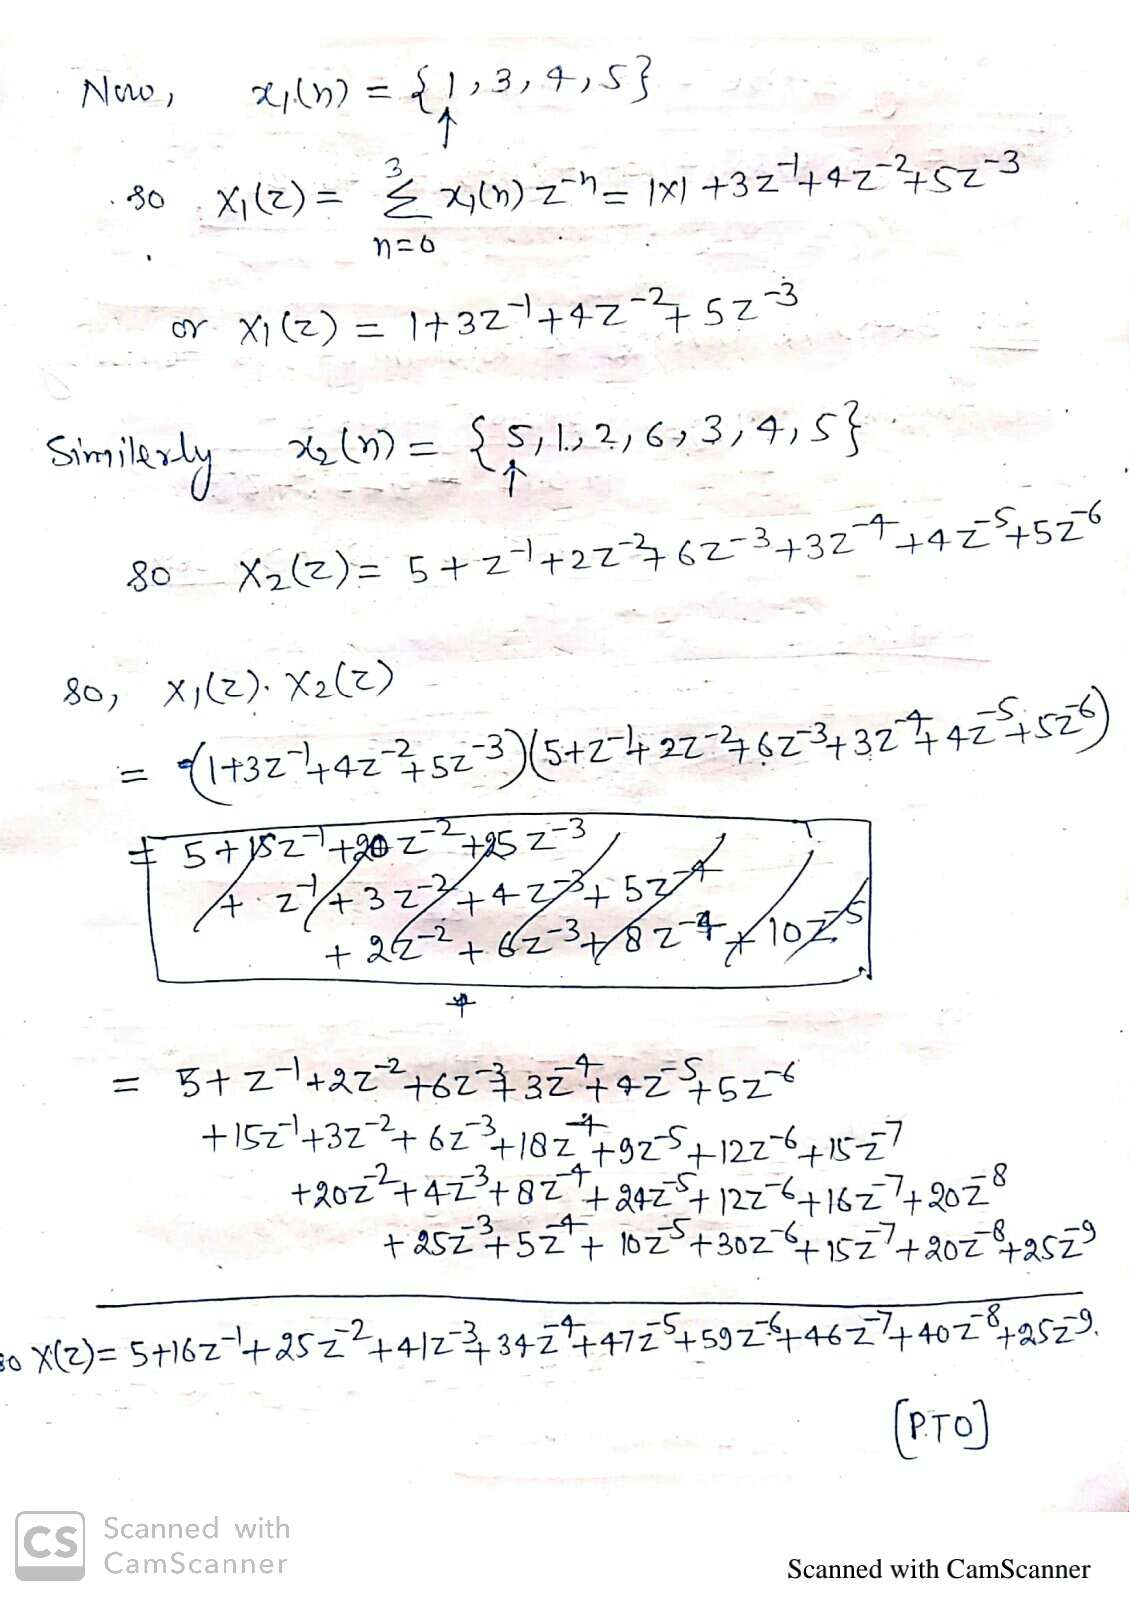 Now, x₁(n) = {1, 3, 4, 5}
↑
so X₁(z) = Σ x₁(n) z⁻ⁿ = 1×1 + 3z⁻¹ + 4z⁻² + 5z⁻³
3
n=0
or X₁(z) = 1 + 3z⁻¹ + 4z⁻² + 5z⁻³
Similerly x₂(n) = {5, 1, 2, 6, 3, 4, 5}
↑
so X₂(z) = 5 + z⁻¹ + 2z⁻² + 6z⁻³ + 3z⁻⁴ + 4z⁻⁵ + 5z⁻⁶
so, X₁(z). X₂(z)
= (1 + 3z⁻¹ + 4z⁻² + 5z⁻³)(5 + z⁻¹ + 2z⁻² + 6z⁻³ + 3z⁻⁴ + 4z⁻⁵ + 5z⁻⁶)
= 5 + 15z⁻¹ + 20z⁻² + 25z⁻³
+ z⁻¹ + 3z⁻² + 4z⁻³ + 5z⁻⁴
+ 2z⁻² + 6z⁻³ + 8z⁻⁴ + 10z⁻⁵
= 5 + z⁻¹ + 2z⁻² + 6z⁻³ + 3z⁻⁴ + 4z⁻⁵ + 5z⁻⁶
+ 15z⁻¹ + 3z⁻² + 6z⁻³ + 18z⁻⁴ + 9z⁻⁵ + 12z⁻⁶ + 15z⁻⁷
+ 20z⁻² + 4z⁻³ + 8z⁻⁴ + 24z⁻⁵ + 12z⁻⁶ + 16z⁻⁷ + 20z⁻⁸
+ 25z⁻³ + 5z⁻⁴ + 10z⁻⁵ + 30z⁻⁶ + 15z⁻⁷ + 20z⁻⁸ + 25z⁻⁹
so X(z) = 5 + 16z⁻¹ + 25z⁻² + 41z⁻³ + 34z⁻⁴ + 47z⁻⁵ + 59z⁻⁶ + 46z⁻⁷ + 40z⁻⁸ + 25z⁻⁹.
[P.TO]
CS Scanned with
CamScanner
Scanned with CamScanner